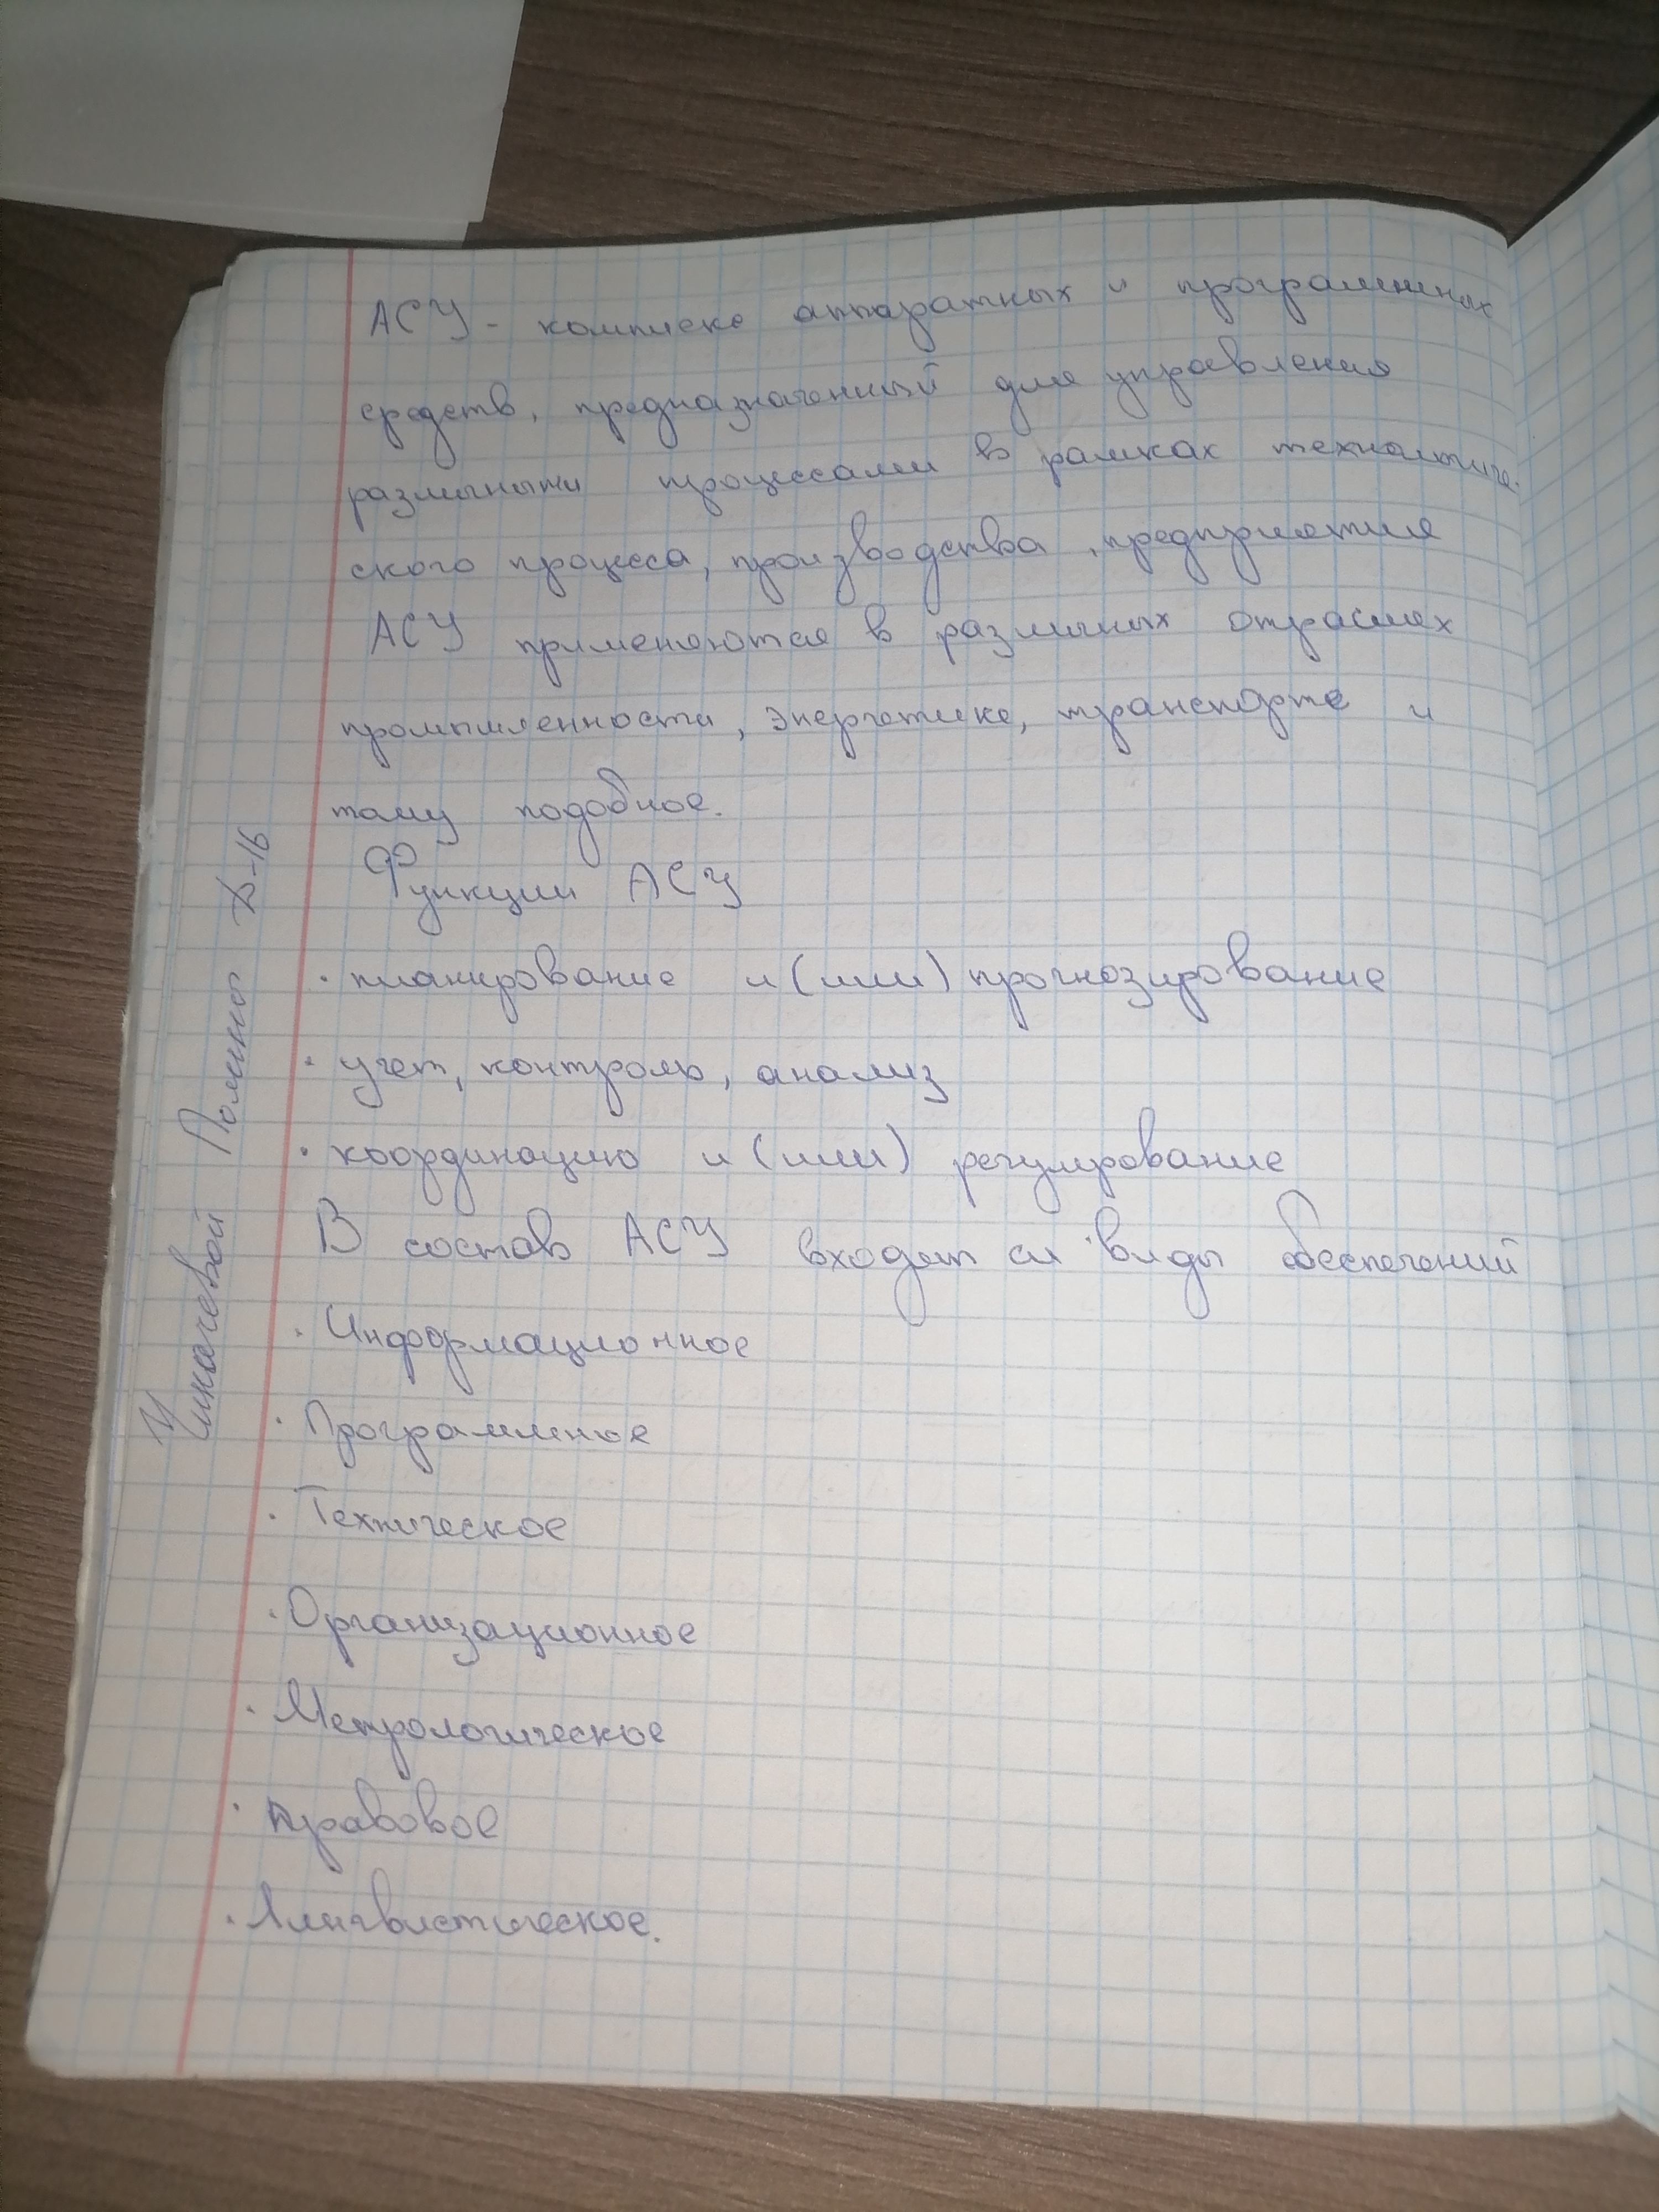 АСУ - комплекс аппаратных и программных
средств, предназначенный для управления
различными процессами в рамках технологиче-
ского процесса, производства, предприятия
АСУ применяются в различных отраслях
промышленности, энергетике, транспорте и
тому подобное.
Функции АСУ
· планирование и (или) прогнозирование
· учет, контроль, анализ
· координацию и (или) регулирование
В состав АСУ входят сл виды обеспечений
· Информационное
· Программное
· Техническое
· Организационное
· Метрологическое
· правовое
· Лингвистическое.
Полины Д-16